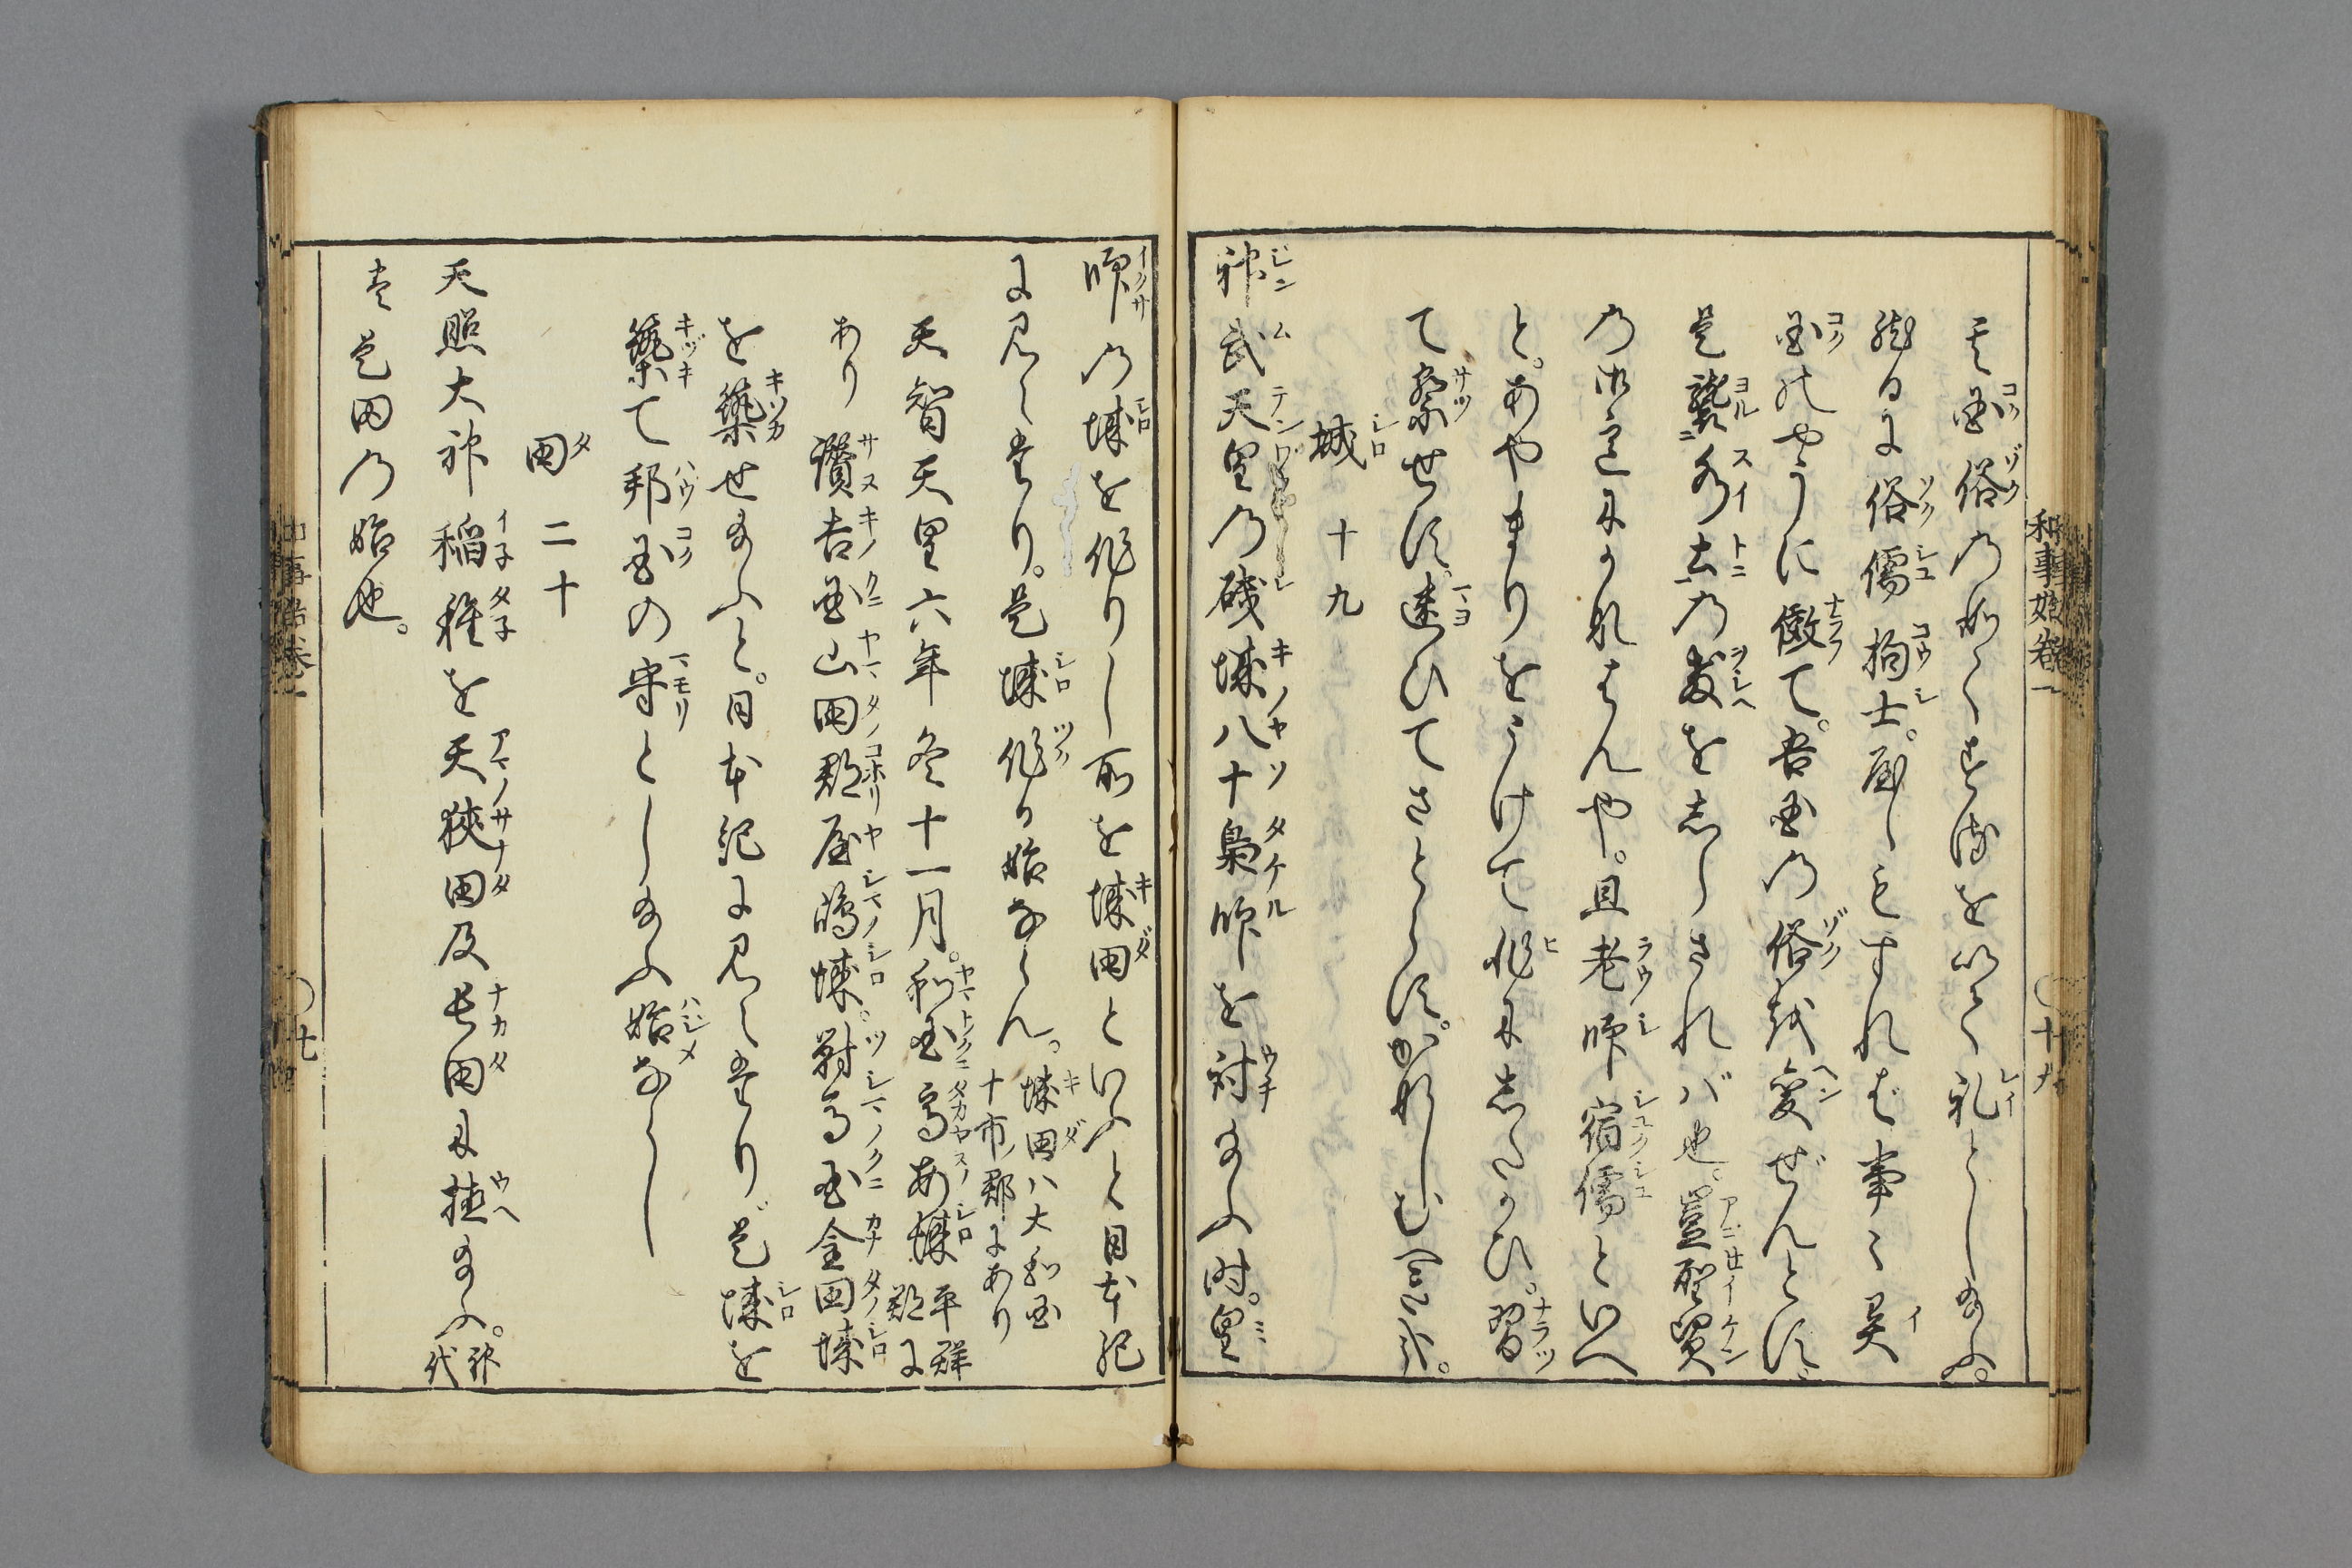 和事始巻一
〇十九
其国俗の如くするを以て礼とし給ふ。
然るに俗儒拘士。屋〻もすれば事〻異
国のやうに倣て。吾国の俗越変ぜんとす。
是襲水土の教をしらざれバ也。豈聖賢
の本意にかなはんや。且老師宿儒といへ
と。あやまりをうけて非にしたかひ。習
て察せす。迷ひてさとらす。かなしむへし。
城 十九
神武天皇の磯城八十梟帥を討給ふ時。皇
師の城を作りし所を城田といふと日本紀
に見えたり。是城作る始ならん。城田ハ大和国
十市郡にあり
天智天皇六年冬十一月。和国高安城平群
郡に
あり讃吉国山田郡屋嶋城。対馬国金田城
を築せ給ふと。日本紀に見えたり。是城を
築て邦国の守とし給ふ始ならし
田 二十
天照大神稲種を天狭田及長田に植給ふ。神
代
書是田の始也。